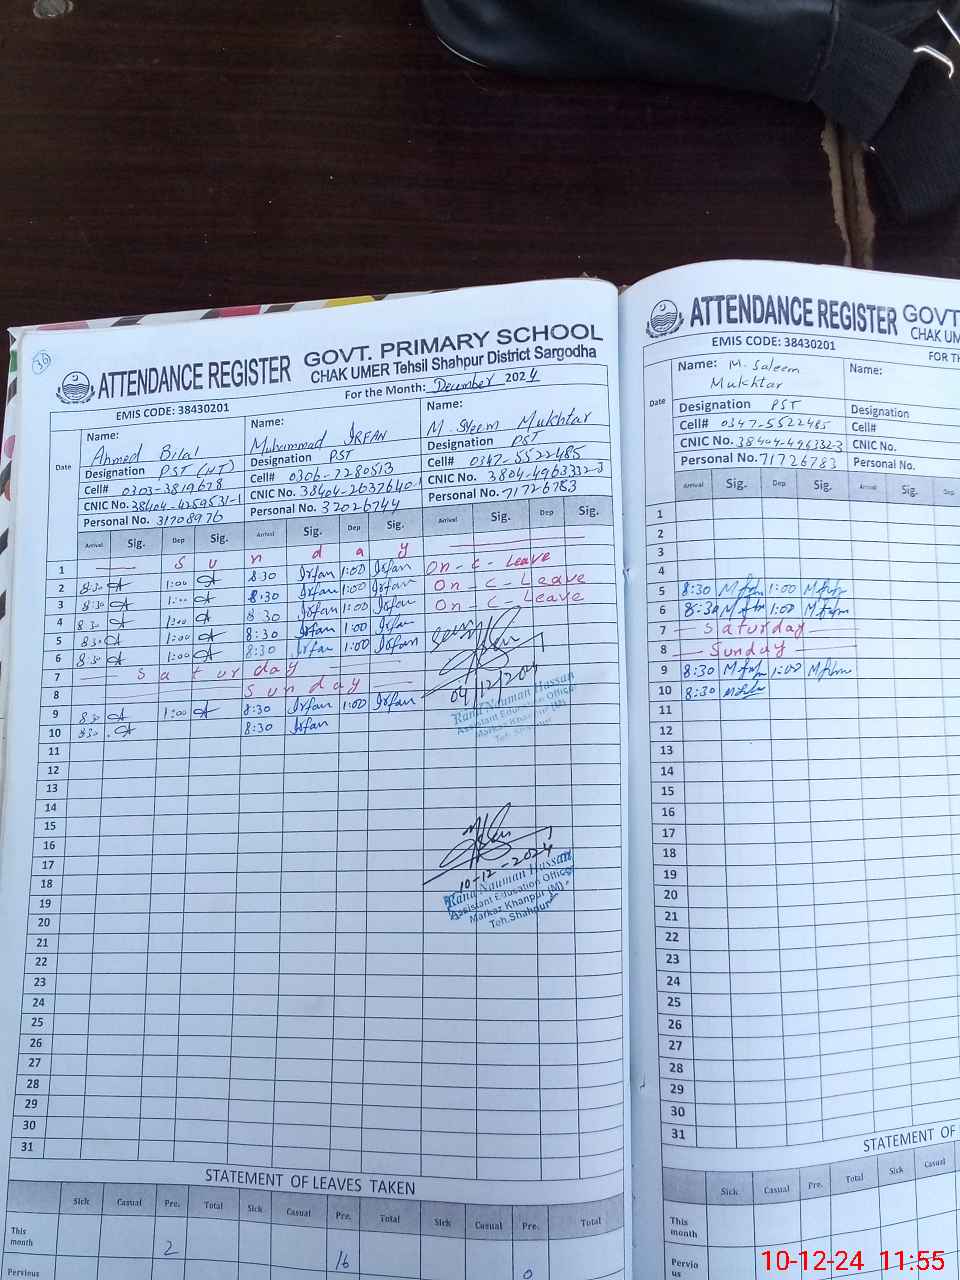 36
ATTENDANCE REGISTER GOVT. PRIMARY SCHOOL
CHAK UMER Tehsil Shahpur District Sargodha
EMIS CODE: 38430201 For the Month: December 2024
Date
Name: Ahmed Bilal
Designation PST (HT)
Cell# 0303-3819678
CNIC No. 38404-4259531-1
Personal No. 31708976
Name: Muhammad IRFAN
Designation PST
Cell# 0306-7280513
CNIC No. 38404-2637640-1
Personal No. 32026744
Name: M. Sleem Mukhtar
Designation PST
Cell# 0347-5522485
CNIC No. 3804-4963332-3
Personal No. 71726783
Arrival Sig. Dep Sig. Arrival Sig. Dep Sig. Arrival Sig. Dep Sig.
1 S u n d a y
2 8:30 1:00 8:30 Irfan 1:00 Irfan On - C - Leave
3 8:30 1:00 8:30 Irfan 1:00 Irfan On - C - Leave
4 8:30 1:00 8:30 Irfan 1:00 Irfan On - C - Leave
5 8:30 1:00 8:30 Irfan 1:00 Irfan
6 8:30 1:00 8:30 Irfan 1:00 Irfan
7 S a t u r d a y
8 S u n d a y
04/12/2024
Rana Nauman Hassan
Assistant Education Officer
Markaz Khanpur (M)
Teh. Shahpur
9 8:30 1:00 8:30 Irfan 1:00 Irfan
10 8:30 8:30 Irfan
11
12
13
14
15
16
17
18
10-12-2024
Rana Nauman Hassan
Assistant Education Officer
Markaz Khanpur (M)
Teh. Shahpur
19
20
21
22
23
24
25
26
27
28
29
30
31
STATEMENT OF LEAVES TAKEN
Sick Casual Pre. Total Sick Casual Pre. Total Sick Casual Pre. Total
This month 2 16 0
Pervious
ATTENDANCE REGISTER GOVT.
CHAK UM
EMIS CODE: 38430201 FOR TH
Date
Name: M. Saleem Mukhtar
Designation PST
Cell# 0347-5522485
CNIC No. 38404-496332-3
Personal No. 71726783
Name:
Designation
Cell#
CNIC No.
Personal No.
Arrival Sig. Dep Sig. Arrival Sig. Dep
1
2
3
4
5 8:30 1:00
6 8:30 1:00
7 Saturday
8 Sunday
9 8:30 1:00
10 8:30
11
12
13
14
15
16
17
18
19
20
21
22
23
24
25
26
27
28
29
30
31
STATEMENT OF
Sick Casual Pre. Total Sick Casual
This month
Pervious
10-12-24 11:55